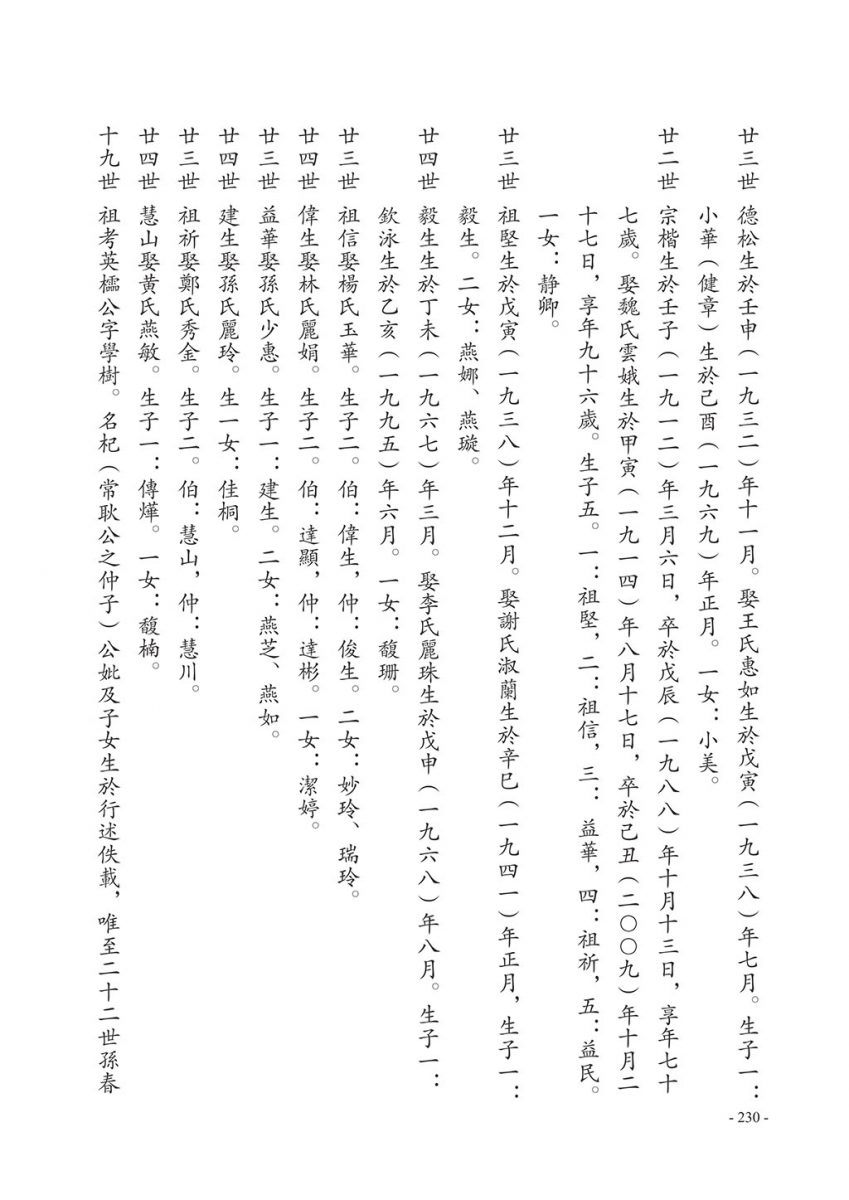 廿三世 德松生於壬申（一九三二）年十一月。娶王氏惠如生於戊寅（一九三八）年七月。生子一：
小華（健章）生於己酉（一九六九）年正月。一女：小美。
廿二世 宗楷生於壬子（一九一二）年三月六日，卒於戊辰（一九八八）年十月十三日，享年七十
七歲。娶魏氏雲娥生於甲寅（一九一四）年八月十七日，卒於己丑（二〇〇九）年十月二
十七日，享年九十六歲。生子五。一：祖堅，二：祖信，三：益華，四：祖祈，五：益民。
一女：静卿。
廿三世 祖堅生於戊寅（一九三八）年十二月。娶謝氏淑蘭生於辛巳（一九四一）年正月，生子一：
毅生。二女：燕娜、燕璇。
廿四世 毅生生於丁未（一九六七）年三月。娶李氏麗珠生於戊申（一九六八）年八月。生子一：
欽泳生於乙亥（一九九五）年六月。一女：馥珊。
廿三世 祖信娶楊氏玉華。生子二。伯：偉生，仲：俊生。二女：妙玲、瑞玲。
廿四世 偉生娶林氏麗娟。生子二。伯：達顯，仲：達彬。一女：潔婷。
廿三世 益華娶孫氏少惠。生子一：建生。二女：燕芝、燕如。
廿四世 建生娶孫氏麗玲。生一女：佳桐。
廿三世 祖祈娶鄭氏秀金。生子二。伯：慧山，仲：慧川。
廿四世 慧山娶黃氏燕敏。生子一：傳燁。一女：馥楠。
十九世 祖考英檽公字學樹。名杞（常耿公之仲子）公妣及子女生於行述佚載，唯至二十二世孫春
- 230 -